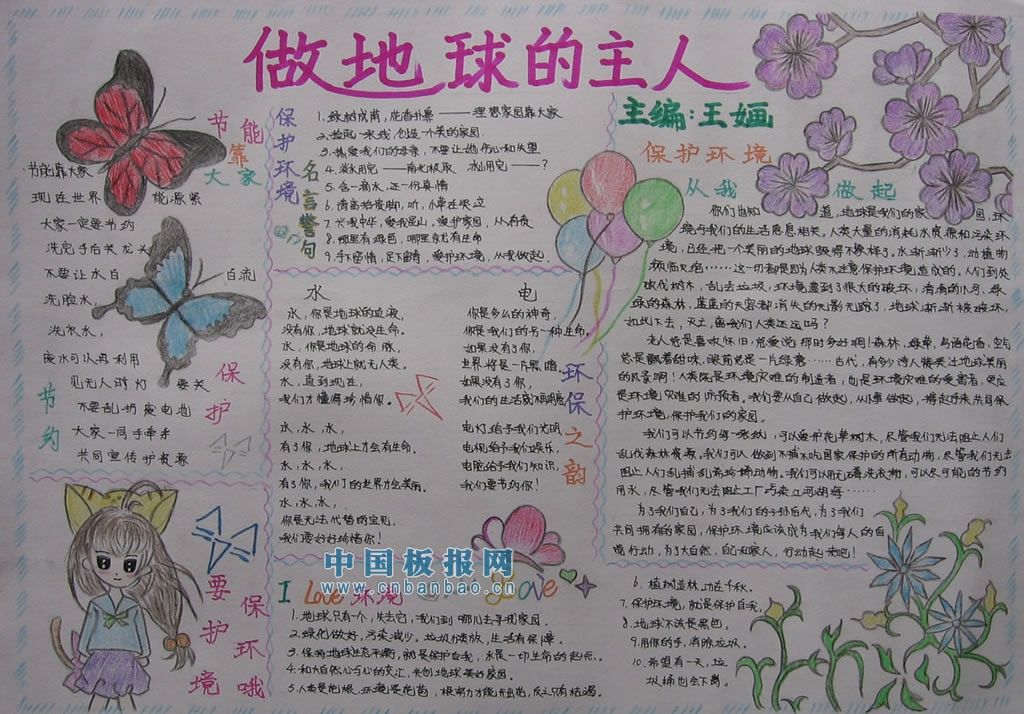 做地球的主人
主编:王婳
节能靠大家
节能靠大家
现在世界能源紧
大家一定要节约
洗完手后关龙头
不要让水白白流
洗脸水,
洗衣水,
废水可以再利用
见无人时灯要关
不要乱扔废电池
大家一同手牵手
共同宣传护资源
节约
保护
要保护环境哦
保护环境
名言警句
1.绿树成荫,花香扑鼻———理想家园靠大家
3.热爱我们的母亲,不要让她伤心和失望
5.含一滴水,还一份真情
6.请高抬贵脚,听,小草在哭泣
8.哪里有绿色,哪里就有生命
9.手下留情,足下留青,爱护环境,从我做起。
水
水,你是地球的血液,
没有你,地球就没生命。
水,你是地球的命脉,
没有你,地球上就无人类。
水,直到现在,
我们才懂得珍惜你。
水,水,水,
有了你,地球上才会有生命。
水,水,水,
有了你,我们的世界才会美丽。
水,水,水,
你是无法代替的宝贝,
我们要好好珍惜你!
电
你是多么的神奇,
你是我们的另一种生命,
如果没有了你,
世界将是一片黑暗,
如果没有了你,
我们的生活就不再明亮
电灯给予我们光明,
电视给予我们娱乐,
电脑给予我们知识,
我们要节约你!
环保之韵
保护环境
从我做起
你们也知道,地球是我们的家园,环
境与我们的生活息息相关,人类大量的消耗水资源和污染环
境,已经把一个美丽的地球毁得不像样了。水渐渐少了,动植物
频临灭绝……这一切都是因为人类不注意保护环境造成的。人们到处
砍伐树木,乱丢垃圾,环境遭到了很大的破坏,清清的小河,绿
绿的森林,蓝蓝的天空都消失的无影无踪了,地球渐渐被破坏,
如此下去,灭亡,离我们人类还远吗?
老人总是喜欢怀旧,总爱说:那时多好啊!森林,绿草,鸟语花香,空气
总是飘着甜味,眼前总是一片绿意……古代,有多少诗人赞美过地球美丽
的风景啊!人类既是环境灾难的制造者,也是环境灾难的受害者,更应
是环境灾难的防预者。我们要从自己做起,从小事做起,携起手来共同保
护环境,保护我们的家园。
我们可以节约每一张纸,可以爱护花草树木,尽管我们无法阻止人们
乱伐森林资源。我们可以做到不捕不吃国家保护的所有动物,尽管我们无法
阻止人们乱捕乱杀珍稀动物。我们可以用无磷洗衣物,可以尽可能的节约
用水,尽管我们无法阻止工厂污染江河湖海……
为了我们自己,为了我们的子孙后代,为了我们
共同拥有的家园,保护环境应该成为我们每人的自
觉行动,为了大自然、自己和家人,行动起来吧!
中国板报网
www.cnbanbao.cn
I Love 环境
Love
1.地球只有一个,失去它,我们到哪儿去寻找家园。
2.绿化做好,污染减少。垃圾分类放,生活有保障。
3.保护地球生态平衡,就是保护自我,水是一切生命的起点。
4.和大自然心与心的交汇,共创地球美好家园。
5.人类是花根,环境是花苞,根努力才能开出花,反之只有枯竭。
6.植树造林,功在千秋。
7.保护环境,就是保护自我,
8.地球不该是黑色。
9.用你的手,消除垃圾。
10.希望有一天,垃
圾桶也会下岗。